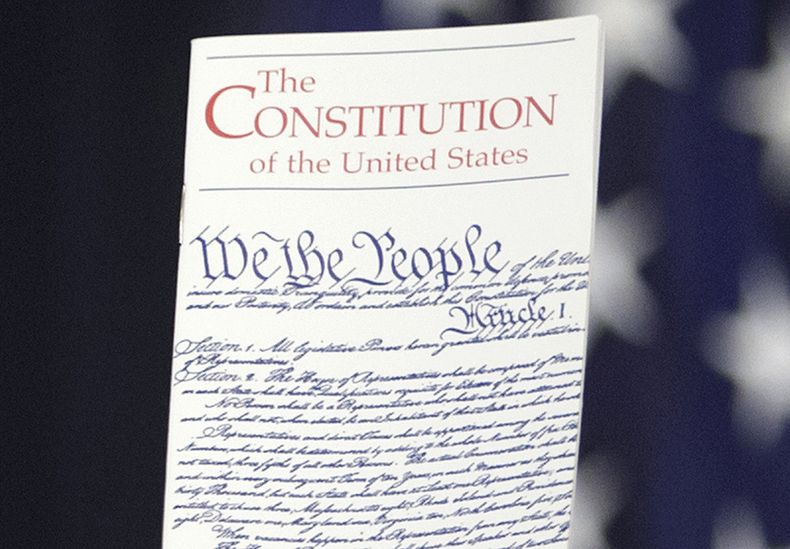 The
CONSTITUTION
of the United States
We the People of the Uni
insure domestic Tranquility, provide for the common defence, promo
and our Posterity, do ordain and establish this Constitution for the U
Article I.
Section 1. All legislative Powers herein granted shall be vested in
of Representatives.
Section 2. The House of Representatives shall be composed of Mem
in each State shall have the Qualifications requisite for Electors of the most numerous
No Person shall be a Representative who shall not have attained to
and who shall not, when elected, be an Inhabitant of that State in which he
Representatives and direct Taxes shall be apportioned among the several
Number, which shall be determined by adding to the whole Number of free
not taxed, three fifths of all other Persons. The actual Enumeration shall be
and within every subsequent Term of ten Years, in such Manner as they shall
thirty Thousand, but each State shall have at Least one Representative;
entitled to chuse three, Massachusetts eight, Rhode Island and Providence
eight, Delaware one, Maryland six, Virginia ten, North Carolina five,
When vacancies happen in the Representation from any State, the